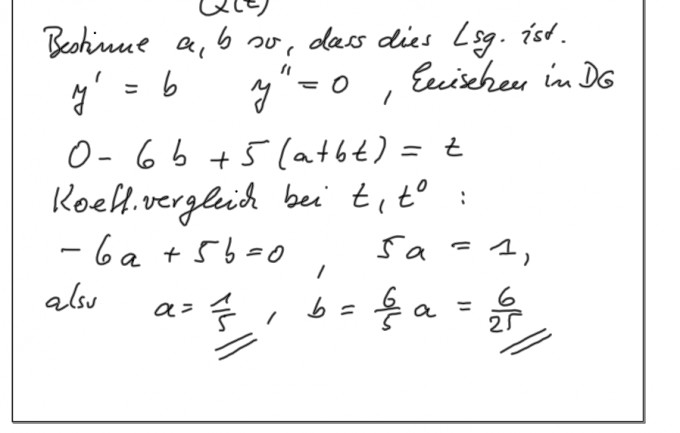 Q(t)
Bestimme a, b so, dass dies Lsg. ist.
y' = b y'' = 0 , Einsetzen in DG
0 - 6b + 5(a+bt) = t
Koeff.vergleich bei t, t⁰ :
-6a + 5b = 0 , 5a = 1,
also a = 1/5 , b = 6/5 a = 6/25